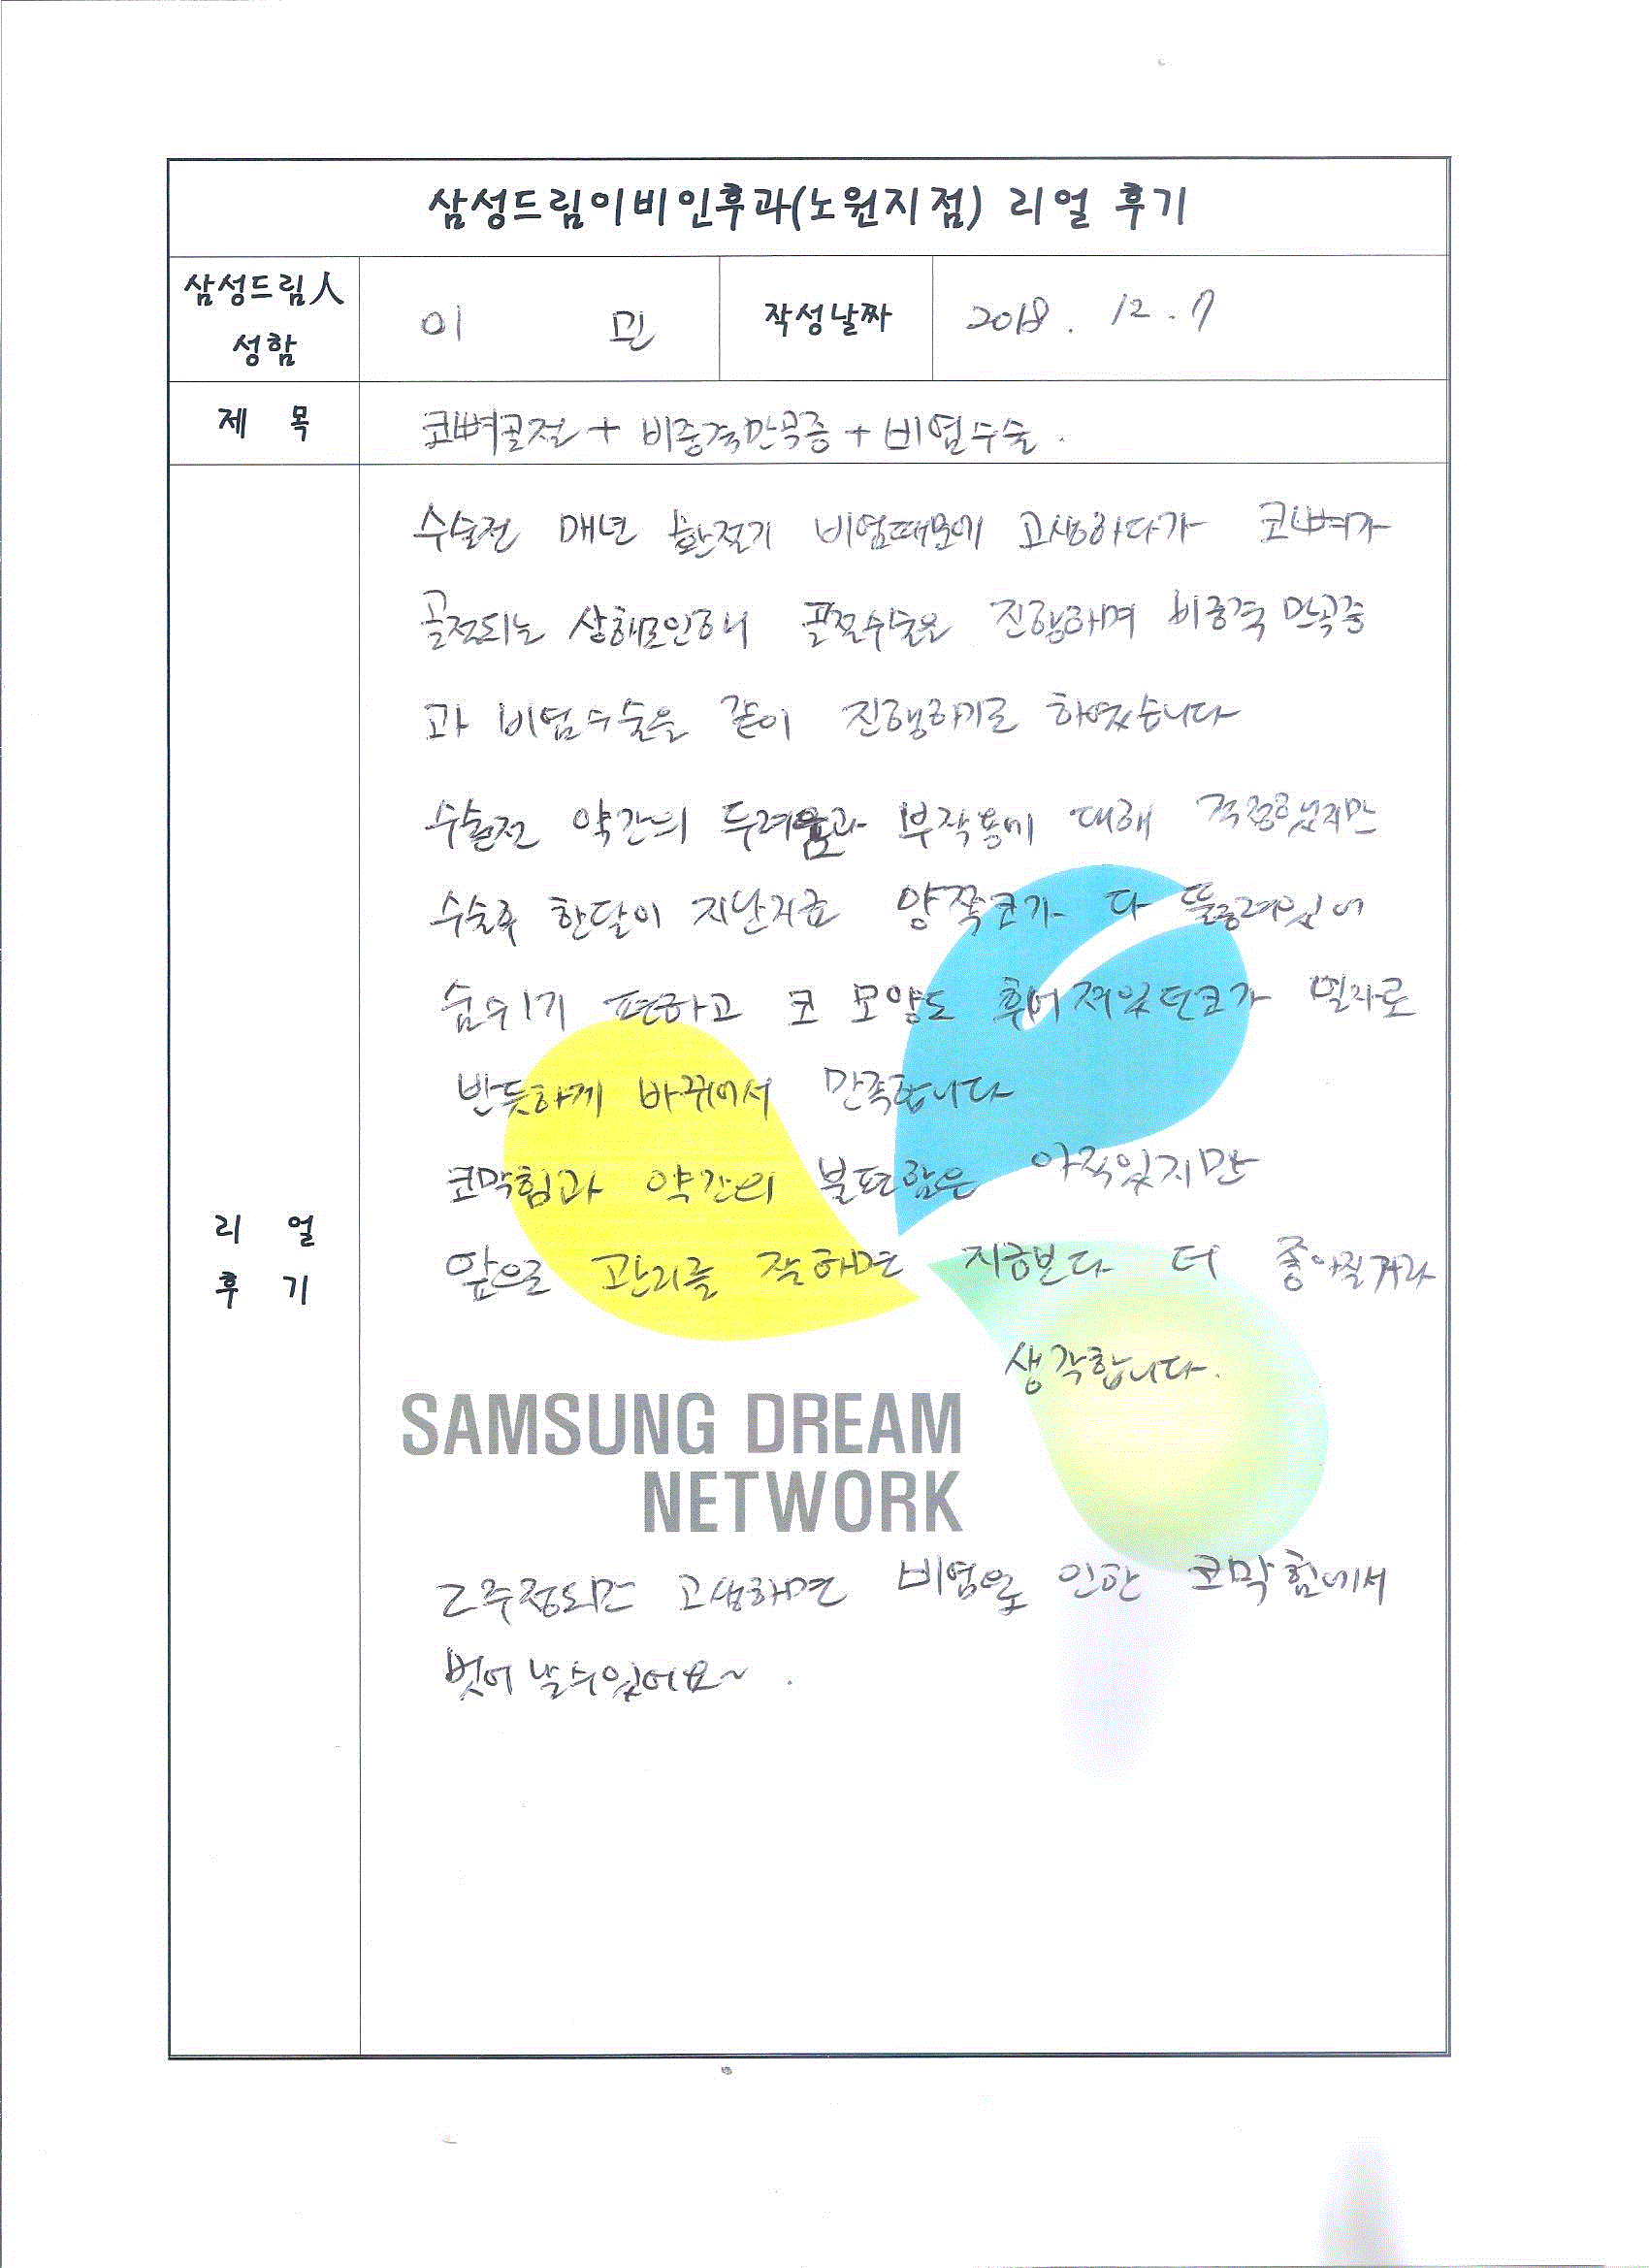 삼성드림이비인후과(노원지점) 리얼 후기
삼성드림人 성함
이 민
작성날짜
2018. 12. 7
제 목
코뼈골절 + 비중격만곡증 + 비염수술.
리 얼 후 기
수술전 매년 환절기 비염때문에 고생하다가 코뼈가
골절되는 상해로인하여 골절수술을 진행하며 비중격 만곡증
과 비염수술을 같이 진행하기로 하였습니다
수술전 약간의 두려움과 부작용에 대해 걱정했지만
수술후 한달이 지난지금 양쪽코가 다 뚫려있어
숨쉬기 편하고 코 모양도 휘어져있던코가 일자로
반듯하게 바뀌어서 만족합니다
코막힘과 약간의 불편함은 아직있지만
앞으로 관리를 잘하면 지금보다 더 좋아질거라
생각합니다.
SAMSUNG DREAM
NETWORK
2주정도만 고생하면 비염으로 인한 코막힘에서
벗어날수있어요~.